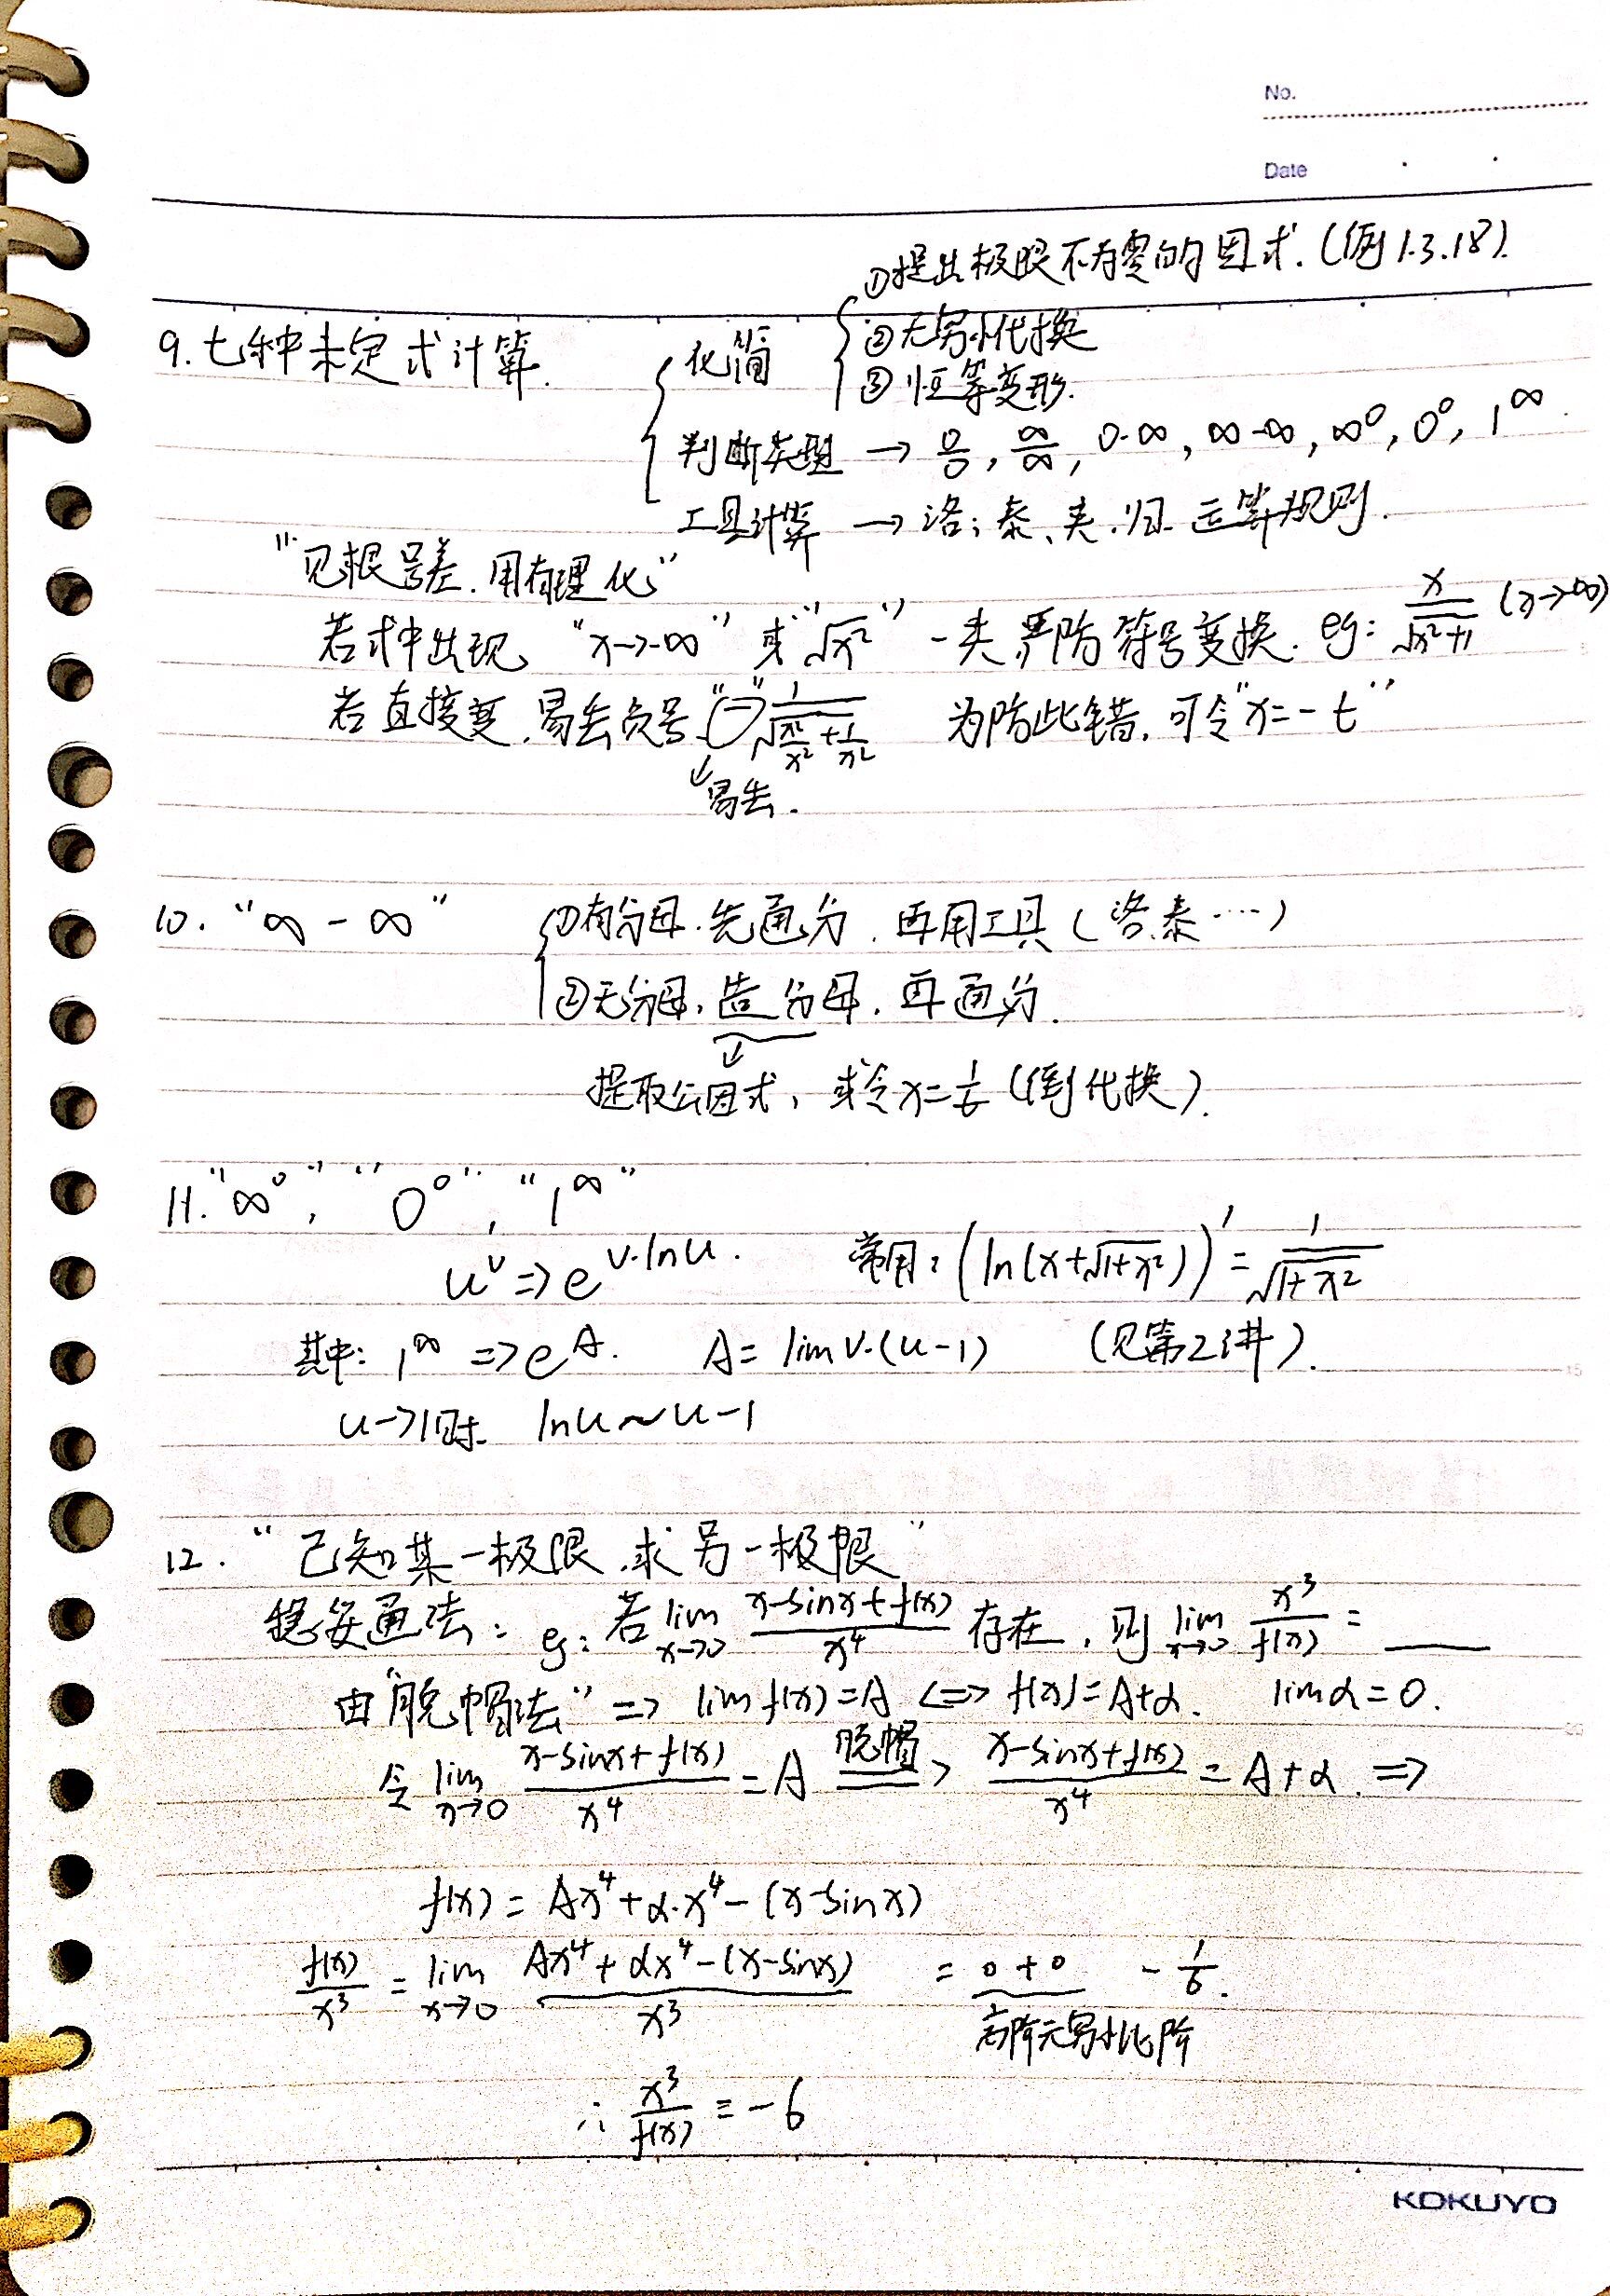 No.
Date
①提出极限不为零的因式.(例1.3.18).
9.七种未定式计算. 化简 ②无穷小代换
③恒等变形.
判断类型 → 0/0, ∞/∞, 0·∞, ∞-∞, ∞^0, 0^0, 1^∞.
工具计算 → 洛、泰、夹、归、运算规则.
"见根号差.用有理化"
若式中出现 "x→-∞" 或 "√x²" 一类,严防符号变换. eg: x/√(x²+1) (x→-∞)
若直接变,易丢负号 "(-)" 1/√(x²/x²+1/x²) 为防此错,可令"x=-t"
↓易丢.
10. "∞-∞" ①有分母.先通分.再用工具(洛.泰····)
②无分母,造分母.再通分.
↓
提取公因式,或令x=1/t(倒代换).
11."∞^0", "0^0", "1^∞"
u^v ⇒ e^(v·lnu). 常用:(ln(x+√(1+x²)))'=1/√(1+x²)
其中: 1^∞ ⇒ e^A. A=lim v·(u-1) (见第2讲).
u→1时 lnu~u-1
12. "已知某一极限.求另一极限"
稳妥通法: eg:若 lim x→0 (x-sinx+f(x))/x⁴ 存在,则 lim x→0 x³/f(x) = ___
由"脱帽法" ⇒ lim f(x)=A ⟺ f(x)=A+α. lim α=0.
令 lim x→0 (x-sinx+f(x))/x⁴ = A 脱帽⇒ (x-sinx+f(x))/x⁴ = A+α. ⇒
f(x)=Ax⁴+α·x⁴-(x-sinx)
f(x)/x³ = lim x→0 (Ax⁴+αx⁴-(x-sinx))/x³ = 0+0 - 1/6.
高阶无穷小比阶
∴ x³/f(x) = -6
KOKUYO